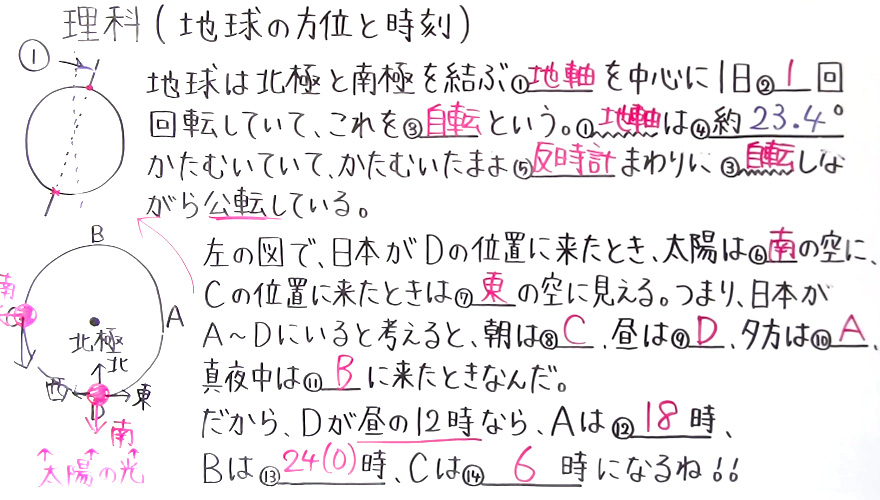 理科(地球の方位と時刻)
①
地球は北極と南極を結ぶ①地軸を中心に1日②1回
回転していて、これを③自転という。①地軸は④約23.4°
かたむいていて、かたむいたまま⑤反時計まわりに③自転しな
がら公転している。
B
左の図で、日本がDの位置に来たとき、太陽は⑥南の空に、
南
Cの位置に来たときは⑦東の空に見える。つまり、日本が
C
A
A〜Dにいると考えると、朝は⑧C、昼は⑨D、夕方は⑩A、
北極
北
真夜中は⑪Bに来たときなんだ。
西
東
D
だから、Dが昼の12時なら、Aは⑫18時、
南
Bは⑬24(0)時、Cは⑭6時になるね!!
太陽の光